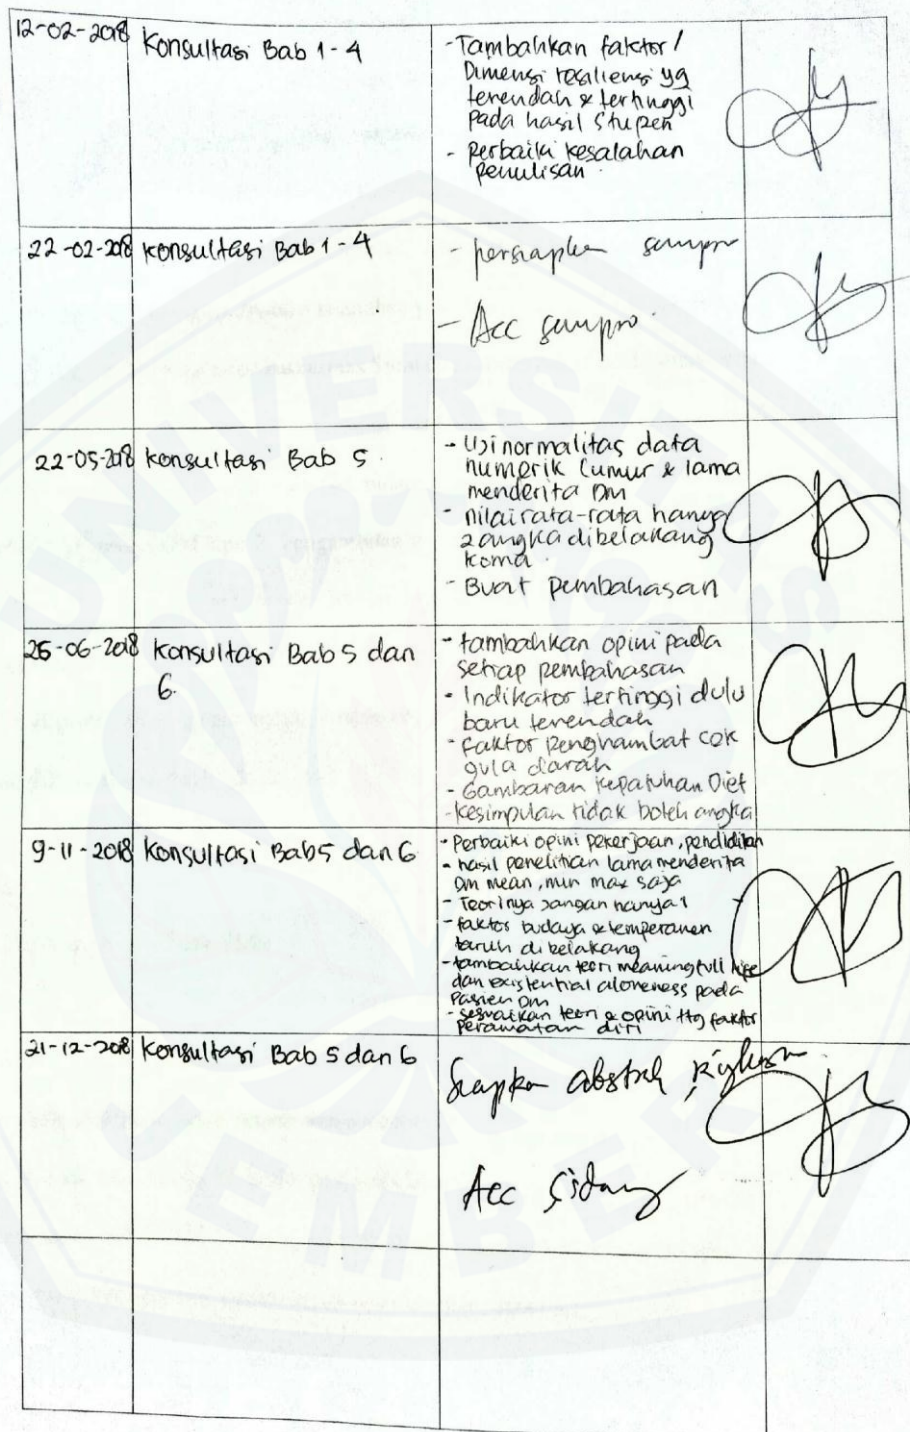 12-02-2018 Konsultasi Bab 1-4
- Tambahkan faktor/
Dimensi resiliensi yg
terendah & tertinggi
pada hasil Stupen
- perbaiki kesalahan
penulisan.
22-02-2018 konsultasi Bab 1-4
- persiapkan sempro
- Acc sempro.
22-05-2018 konsultasi Bab 5.
- Uji normalitas data
numerik (umur & lama
menderita DM
- nilai rata-rata hanya
2 angka dibelakang
koma.
- Buat pembahasan
25-06-2018 Konsultasi Bab 5 dan
6.
- tambahkan opini pada
setiap pembahasan
- Indikator tertinggi dulu
baru terendah
- faktor penghambat cek
gula darah
- Gambaran kepatuhan Diet
- kesimpulan tidak boleh angka
9-11-2018 Konsultasi Bab 5 dan 6
- Perbaiki opini pekerjaan, pendidikan
- hasil penelitian lama menderita
DM mean, min max saja
- Teorinya jangan hanya 1
- faktor budaya & temperanen
taruh di belakang
- tambahkan teori meaningfull life
dan existential aloneness pada
Pasien DM
- sesuaikan teori & opini ttg faktor
perawatan diri
21-12-2018 Konsultasi Bab 5 dan 6
Siapkan abstrak,
Acc Sidang
UNIVERSITAS
JEMBER